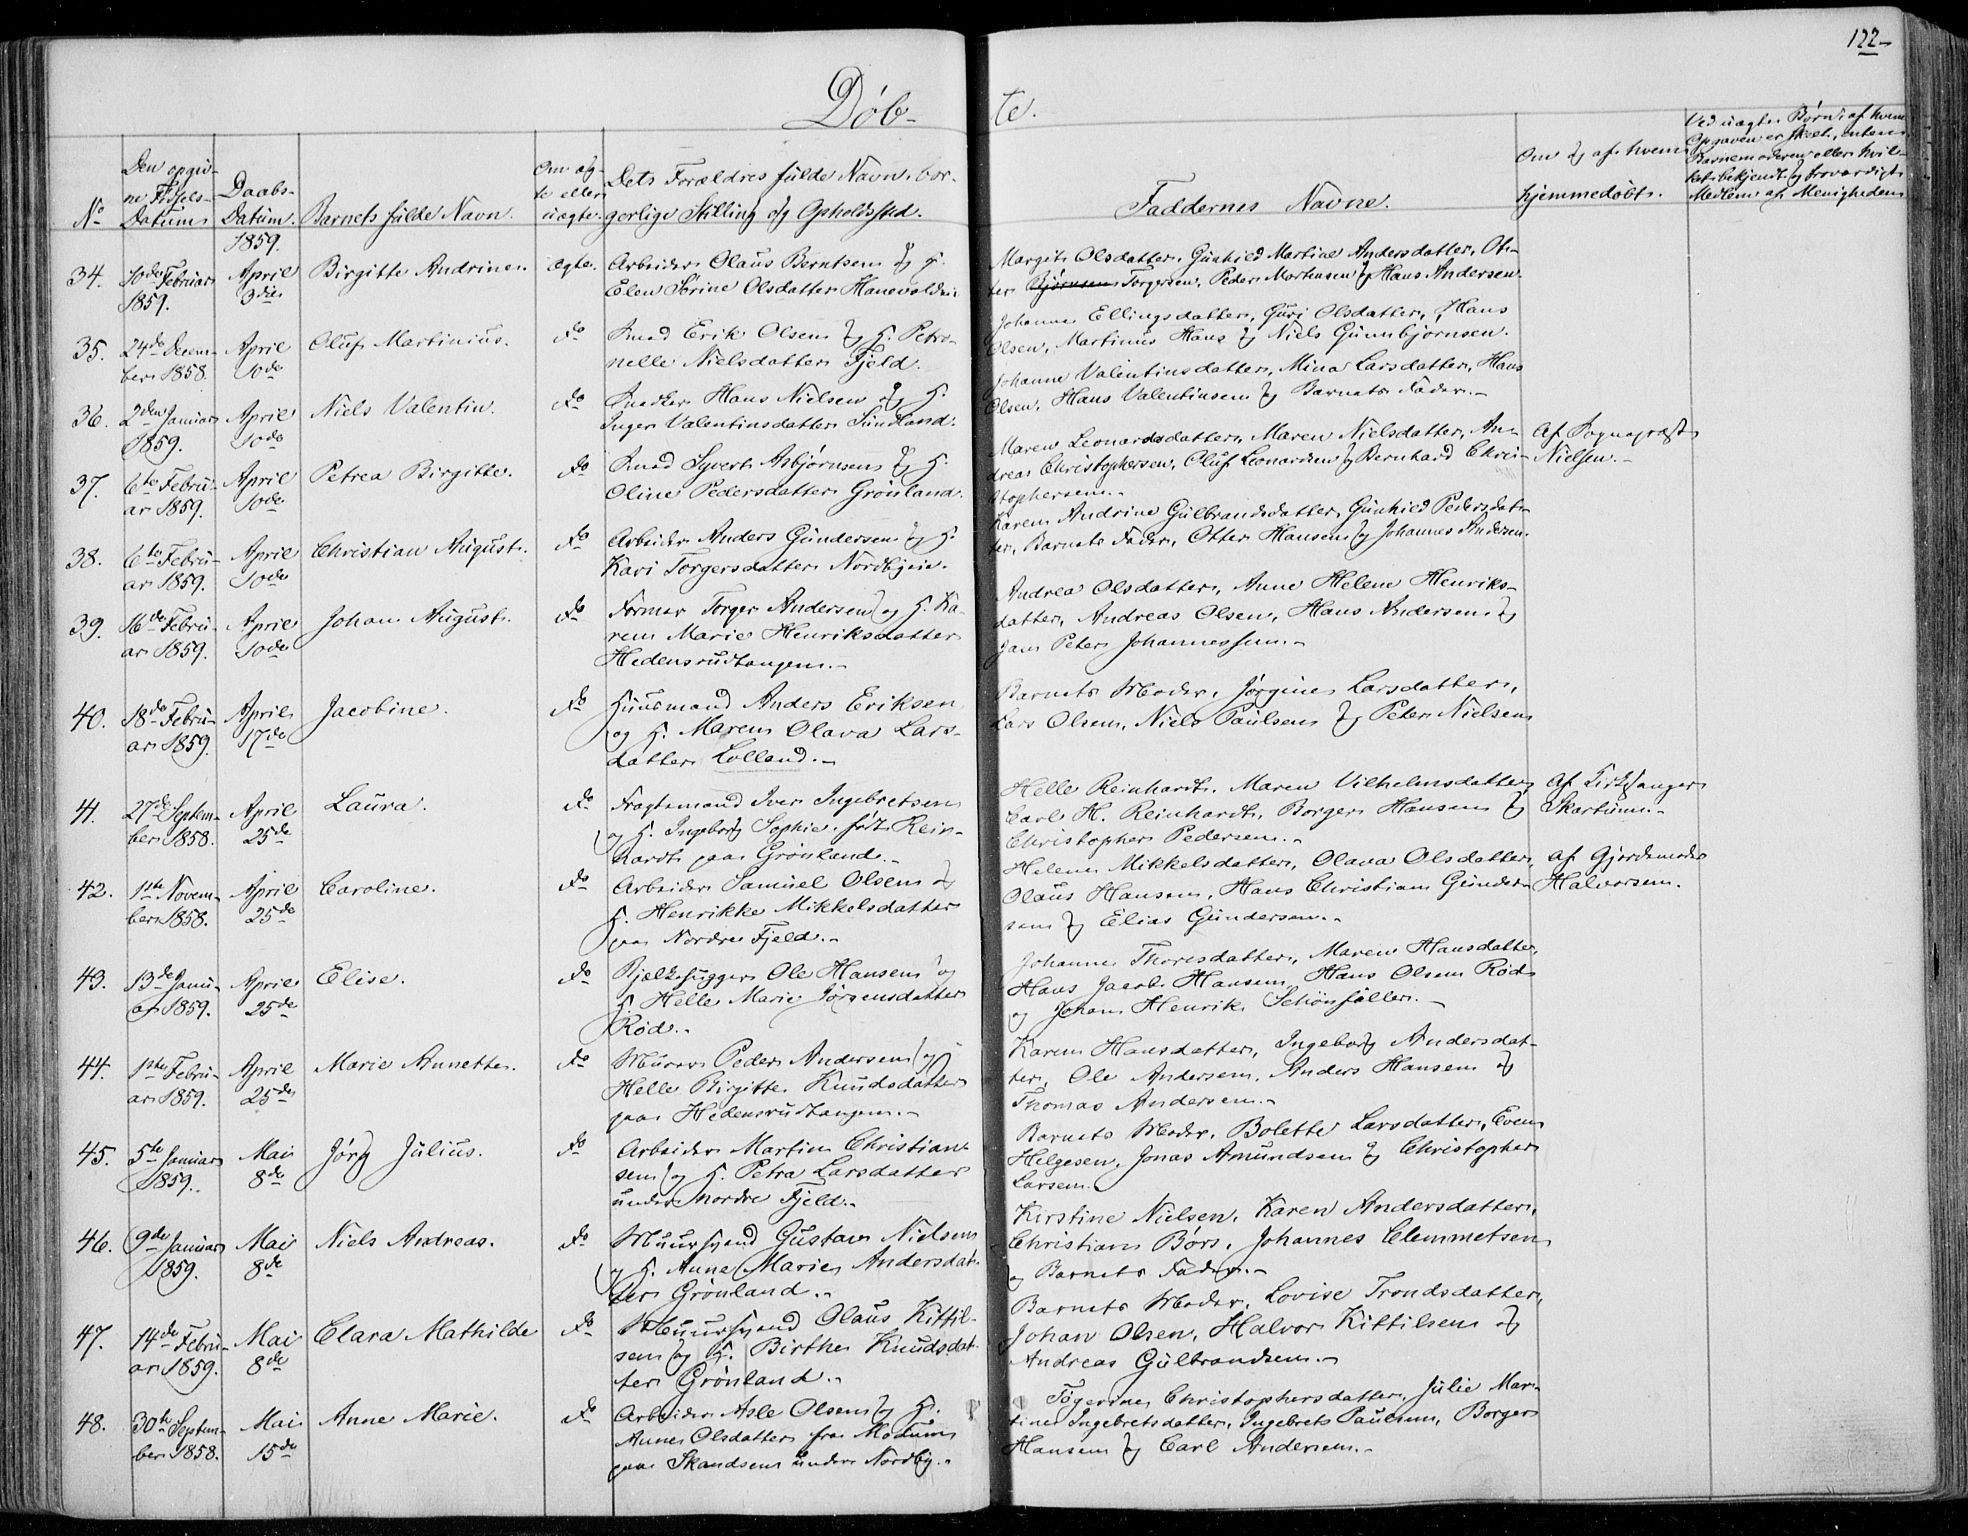 122
Døb-
te.
No
Den opgiv-
ne Fødsels-
Datum.
Daabs-
Datum.
Barnets fulde Navn.
Om æg-
te eller
uægte.
Dets Forældres fulde Navn, bor-
gerlige Stilling og Opholdssted.
Faddernes Navne.
Om og af hvem
hjemmedøbt.
Ved uægte Børn: af hvem
Opgaven er skeet, enten
Barnemoderen eller hvil-
ket bekjendt og troværdigt
Medlem af Menigheden
1859.
34.
10de Februar
1859.
April
3die
Birgitte Andrine.
ægte.
Arbeider Olaus Berntsen og H.
Elen Serine Olsdatter Hanevoldeie
Margit Olsdatter, Gunhild Martine Andersdatter, Ot-
ter Bjørnsen Torgersen, Peder Mortensen og Hans Andersen.
35.
24de Decem-
ber 1858.
April
10de
Oluf Martinius.
do
Smed Erik Olsen og H. Petro-
nelle Nielsdatter Fjeld.
Johanne Ellingsdatter, Guri Olsdatter, Hans
Olsen, Martinus Hans og Niels Gunnbjørnsen.
36.
2den Januar
1859.
April
10de
Niels Valentin.
do
Snedker Hans Nielsen og H.
Inger Valentinsdatter Sundland.
Johanne Valentinsdatter, Mina Larsdatter, Hans
Olsen, Hans Valentinsen og Barnets Fader.-
37.
6te Febru-
ar 1859.
April
10de
Petrea Birgitte.
do
Smed Syvert Asbjørnsen og H.
Oline Pedersdatter Grønland.
Maren Leonardsdatter, Maren Nielsdatter, An-
dreas Christophersen, Oluf Leonardsen og Bernhard Chri-
stophersen.-
Af Sognepræst
Nielsen.-
38.
6te Febru-
ar 1859.
April
10de
Christian August.
do
Arbeider Anders Gundersen og H.
Kari Torgersdatter Nordbyeie.
Karen Andrine Gulbrandsdatter, Gunhild Pedersdat-
ter, Barnets Fader, Otter Hansen og Johannes Andersen.
39.
16de Febru-
ar 1859.
April
10de
Johan August.
do
Former Torger Andersen og H. Ka-
ren Marie Henriksdatter
Hedensrudtangen.-
Andrea Olsdatter, Anne Helene Henriks-
datter, Andreas Olsen, Hans Andersen og
Jans Peter Johannessen.-
40.
18de Febru-
ar 1859.
April
17de
Jacobine.
do
Huusmand Anders Eriksen
og H. Maren Olava Lars-
datter Lolland.-
Barnets Moder, Jørgine Larsdatter,
Lars Olsen, Niels Paulsen og Peter Nielsen
41.
27de Septem-
ber 1858.
April
25de
Laura.
do
Fragtemand Iver Ingebretsen
og H. Ingeborg Sophie født Rein-
hardt paa Grønland.-
Helle Reinhardt, Maren Vilhelmsdatter,
Carl H. Reinhardt, Borger Hansen og
Christopher Pedersen.-
Af Kirkesanger
Skartum.-
42.
1ste Novem-
ber 1858.
April
25de
Caroline.
do
Arbeider Samuel Olsen og
H. Henrikke Mikkelsdatter
paa Nordre Fjeld.-
Helene Mikkelsdatter, Olava Olsdatter,
Olaus Hansen, Hans Christian Gunder-
sen og Elias Gundersen.-
Af Gjordemoder
Halvorsen.
43.
13de Janu-
ar 1859.
April
25de
Elise.
do
Bjælkehugger Ole Hansen og
H. Helle Marie Jørgensdatter
Rød.-
Johanne Thoresdatter, Maren Hansdatter,
Hans Jacob Hansen, Hans Olsen Rød
og Johan Henrik Schønfålder.-
44.
1ste Febru-
ar 1859.
April
25de
Marie Annette.
do
Murer Peder Andersen og
Helle Birgitte Knudsdatter
paa Hedensrudtangen.-
Karen Hansdatter, Ingeborg Andersdat-
ter, Ole Andersen, Anders Hansen og
Thomas Andersen.-
45.
5te Januar
1859.
Mai
8de
Jørg Julius.
do
Arbeider Martin Christian-
sen og H. Petra Larsdatter
under nordre Fjeld.-
Barnets Moder, Bolette Larsdatter, Even
Helgesen, Jonas Amundsen og Christopher
Larsen.
46.
9de Januar
1859.
Mai
8de
Niels Andreas.
do
Muursvend Gustav Nielsen
og H. Anne Marie Andersdat-
ter Grønland.-
Kirstine Nielsen, Karen Andersdatter,
Christian Børs, Johannes Clemmetsen
og Barnets Fader.-
47.
14de Febru-
ar 1859.
Mai
8de
Clara Mathilde
do
Muursvend Olaus Kittil-
sen og H. Birthe Knudsdat-
ter Grønland.-
Barnets Moder, Lovise Trondsdatter,
Johan Olsen, Halvor Kittilsen og
Andreas Gulbrandsen.-
48.
30te Septem-
ber 1858.
Mai
15de
Anne Marie.
do
Arbeider Asle Olsen og H.
Anne Olsdatter fra Modum
paa Skandsen under Nordby.-
Christophersdatter, Julie Mar-
tine Ingebretsdatter, Ingebret Paulsen, Borger
Hansen og Carl Andersen.-